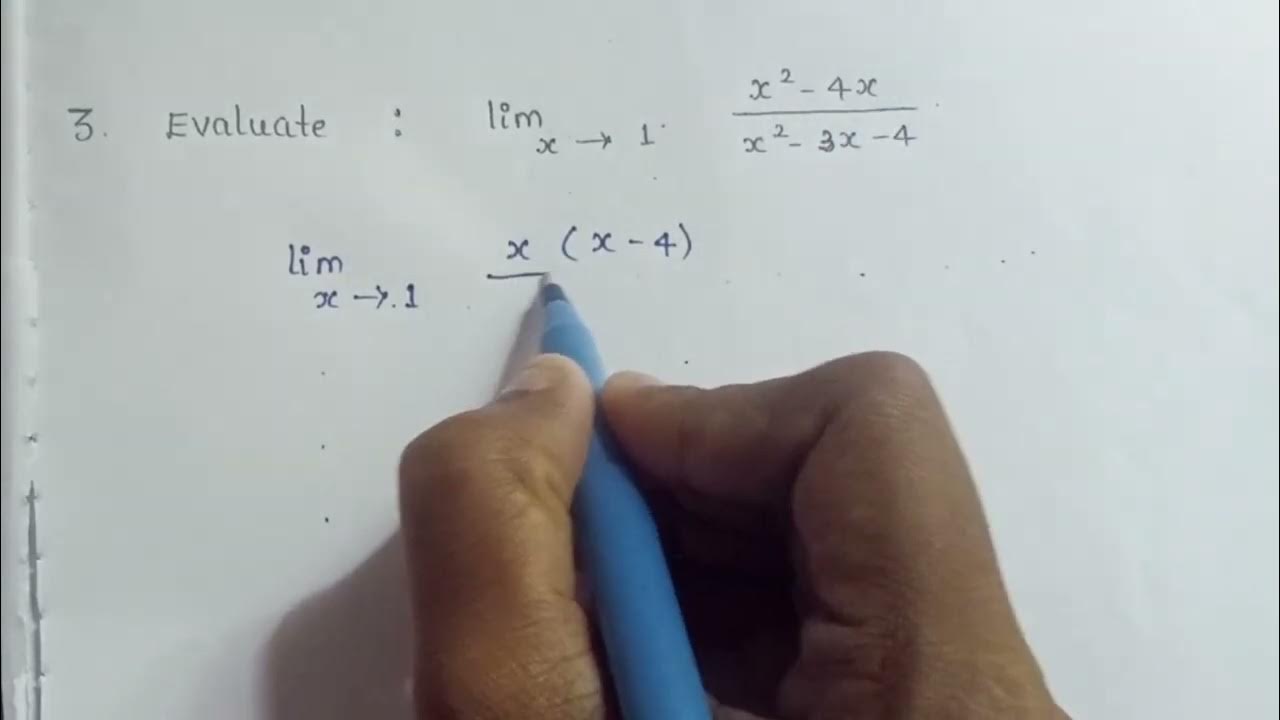 3. Evaluate : lim x → 1 x² - 4x / x² - 3x - 4
lim x → 1 x (x - 4)